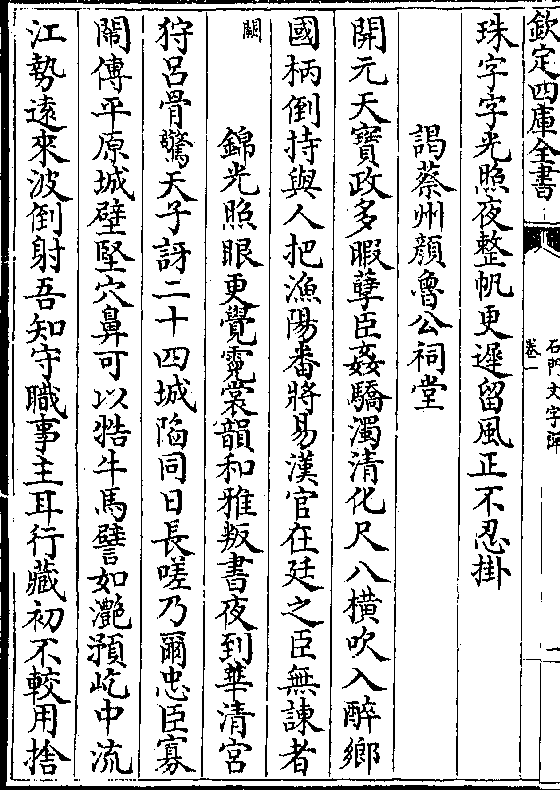 欽定四庫全書
石門文字禪
卷一
珠字字光照夜整帆更遲留風正不忍掛
謁蔡州顏魯公祠堂
開元天寶政多暇孽臣姦驕濁清化尺八橫吹入醉鄉
國柄倒持與人把漁陽番將易漢官在廷之臣無諫者
闕
錦光照眼更覺霓裳韻和雅叛書夜到華清宮
狩呂骨驚天子訝二十四城陷同日長嗟乃爾忠臣寡
閙傳平原城壁堅穴鼻可以牿牛馬譬如灧預屹中流
江勢逺來波倒射吾知守職事主耳行藏初不較用捨